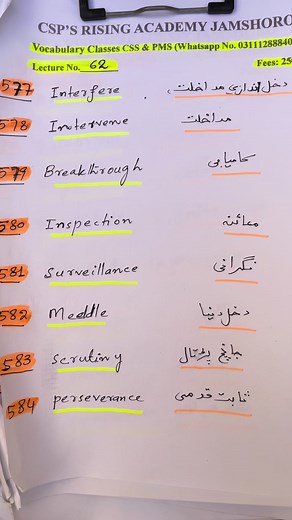 CSP'S RISING ACADEMY JAMSHORO
Vocabulary Classes CSS & PMS (Whatsapp No. 03111288840
Lecture No. 62 Fees: 25
577 Interfere . دخل اندازی، مداخلت
578 Intervene مداخلت
579 Breakthrough کامیابی
580 Inspection معائنہ
581 Surveillance نگرانی
582 Meddle دخل دینا
583 Scrutiny جانچ پڑتال
584 perseverance ثابت قدمی